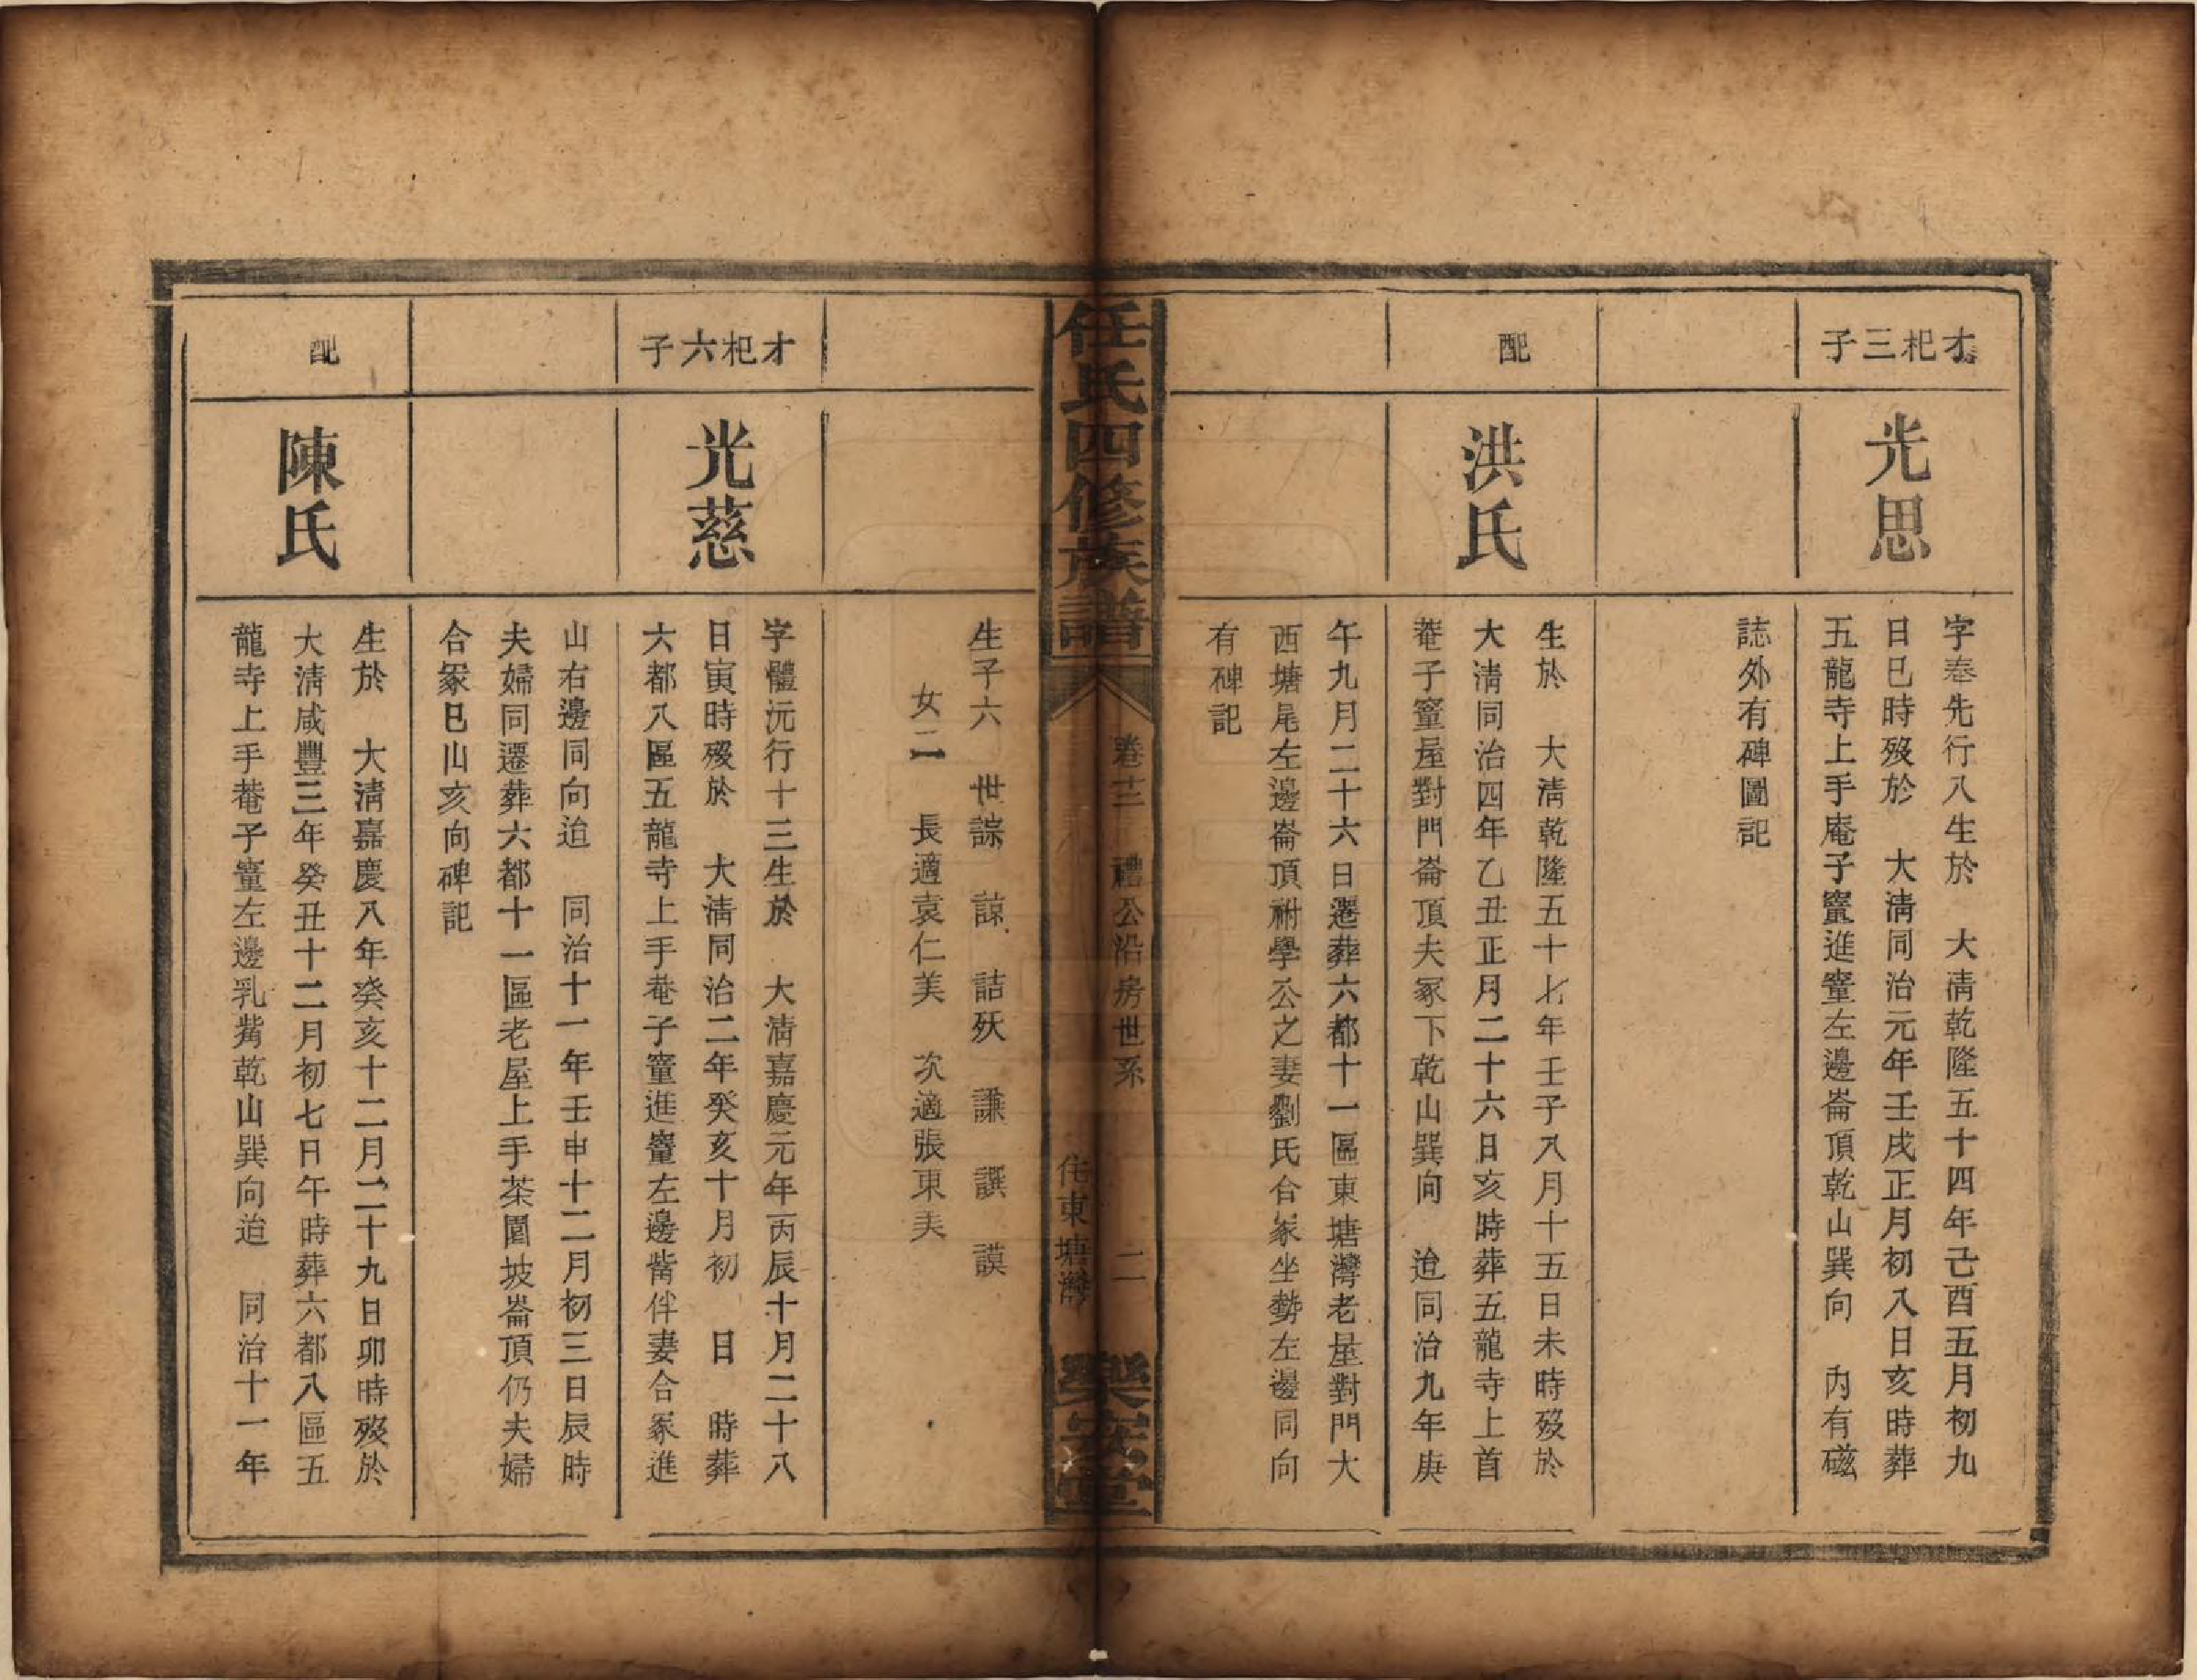 才杞三子
光思
字奉先行八生於　大淸乾隆五十四年己酉五月初九
日巳時殁於　大淸同治元年壬戌正月初八日亥時葬
五龍寺上手庵子窰進窰左邊崙頂乾山巽向　內有磁
誌外有碑圖記
配
洪氏
生於　大淸乾隆五十七年壬子八月十五日未時殁於
大淸同治四年乙丑正月二十六日亥時葬五龍寺上首
菴子窰屋對門崙頂夫冢下乾山巽向　迨同治九年庚
午九月二十六日遷葬六都十一區東塘灣老屋對門大
西塘尾左邊崙頂祔學公之妻劉氏合冢坐勢左邊同向
有碑記
任氏四修族譜
卷十二　禮公沿房世系　二
住東塘灣
樂安堂
生子六　世誴　諒　詰殀　謙　譔　謨
女二　長適袁仁美　次適張東美
才杞六子
光慈
字體沅行十三生於　大淸嘉慶元年丙辰十月二十八
日寅時殁於　大淸同治二年癸亥十月初　日　時葬
六都八區五龍寺上手菴子窰進窰左邊觜伴妻合冢進
山右邊同向迨　同治十一年壬申十二月初三日辰時
夫婦同遷葬六都十一區老屋上手茶園坡崙頂仍夫婦
合冢巳山亥向碑記
配
陳氏
生於　大淸嘉慶八年癸亥十二月二十九日卯時殁於
大淸咸豐三年癸丑十二月初七日午時葬六都八區五
龍寺上手菴子窰左邊乳觜乾山巽向迨　同治十一年